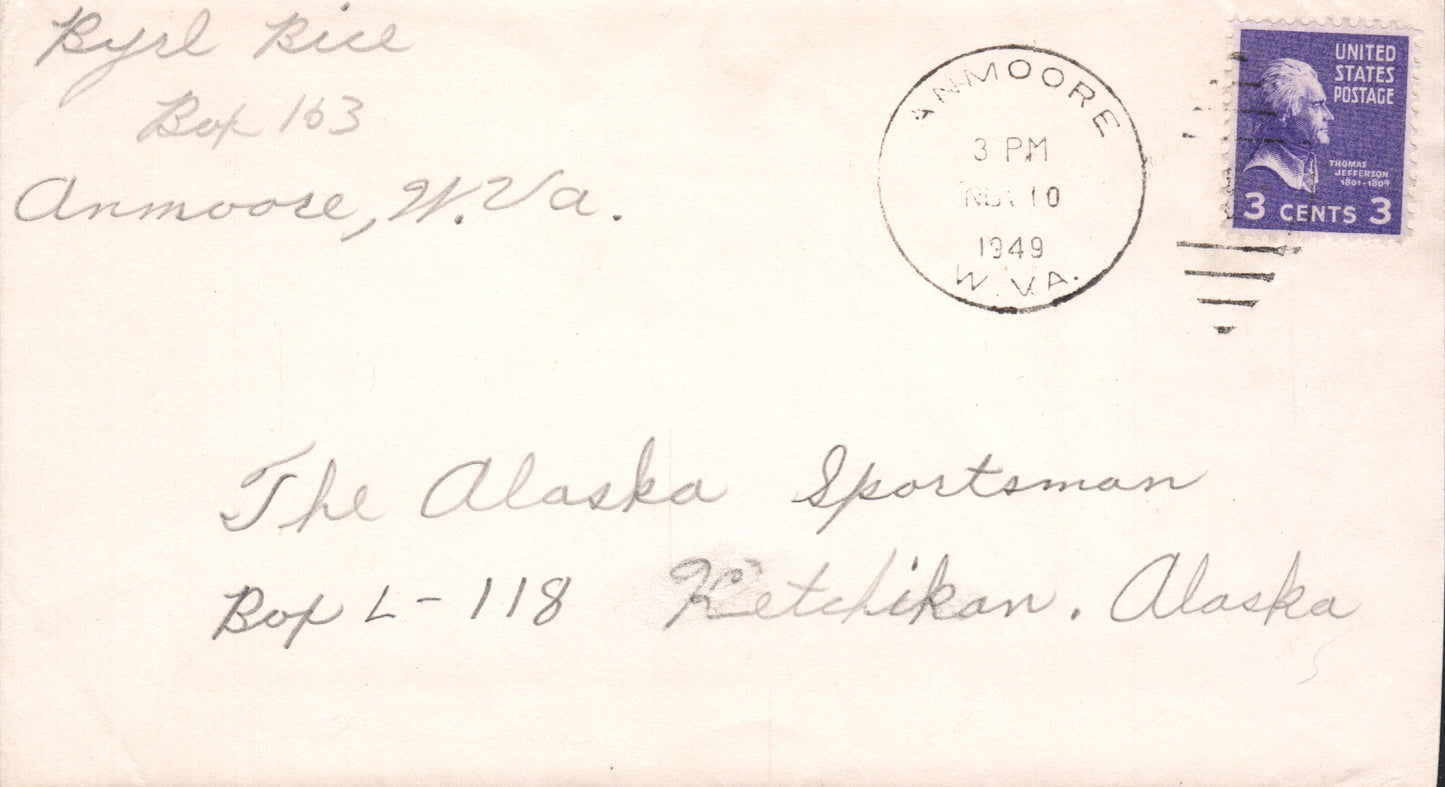 Byrl Bice
Box 163
Anmoore, W. Va.
ANMOORE
3 PM
NOV 10
1949
W. VA.
UNITED
STATES
POSTAGE
THOMAS
JEFFERSON
1801-1809
3 CENTS 3
The Alaska Sportsman
Box L-118 Ketchikan. Alaska